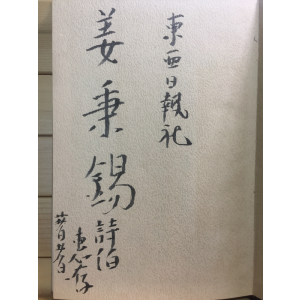 東亜日報社
姜秉錫詩伯
惠存